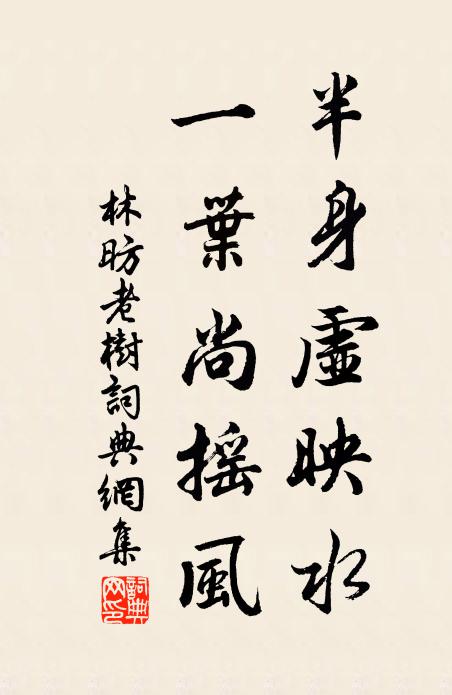 半身虛映水
一葉尚搖風
林昉老樹詞典網集
詞典網印